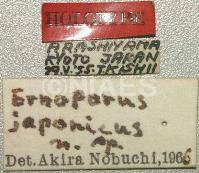 HOLOTYPE
ARASHIYAMA
KYOTO JAPAN
Ernoporus
japonicus
n. sp.
Det. Akira Nobuchi, 1966